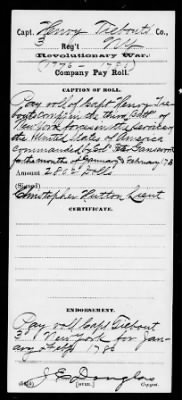 Capt. Henry Tiebout's Co.,
3 Reg't N.Y.
Revolutionary War.
(1775 - 1783)
Company Pay Roll.
CAPTION OF ROLL.
Pay roll of Capt Henry Tie-
bouts Comp in the third Batt of
New York forces in the service of
the United States of America
commanded by Col Peter Gansevoort
for the months of January & February 178
Amount 280 Dolls
Signed
Christopher Hutton Lieut
CERTIFICATE.
ENDORSEMENT.
Pay roll Capt Tiebout
3d New York for Jan-
uary & Feby 1780
J E Douglas
Copyist.